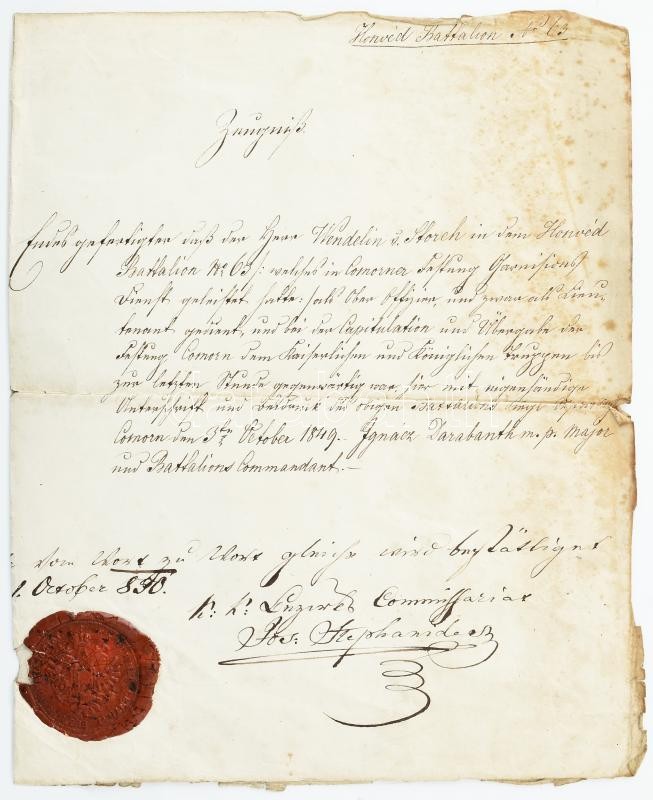 Honvéd Battalion No 63
Zeugniß.
Endesgefertigter daß der Herr Wendelin v. Storch in dem Honvéd
Battalion No 63 /: welches in Comorner Festung Garnisions
Dienst geleistet hatte :/ als Ober Offizier, und zwar als Lieu-
tenant gedient, und bei der Capitulation und Übergabe der
Festung Comorn dem Kaiserlichen und Königlichen Truppen bis
zur letzten Stunde gegenwärtig war, hier mit eigenhändige
Unterschrift und des obigen Battalions
Comorn den 3ten October 1849.– Ignácz Darabanth m. p. Major
und Battalions Commandant.–
Vom Wort zu Wort gleich wird bestättiget
October 850.
K: K: Bezirks Commissariat
Jos: Stephanides